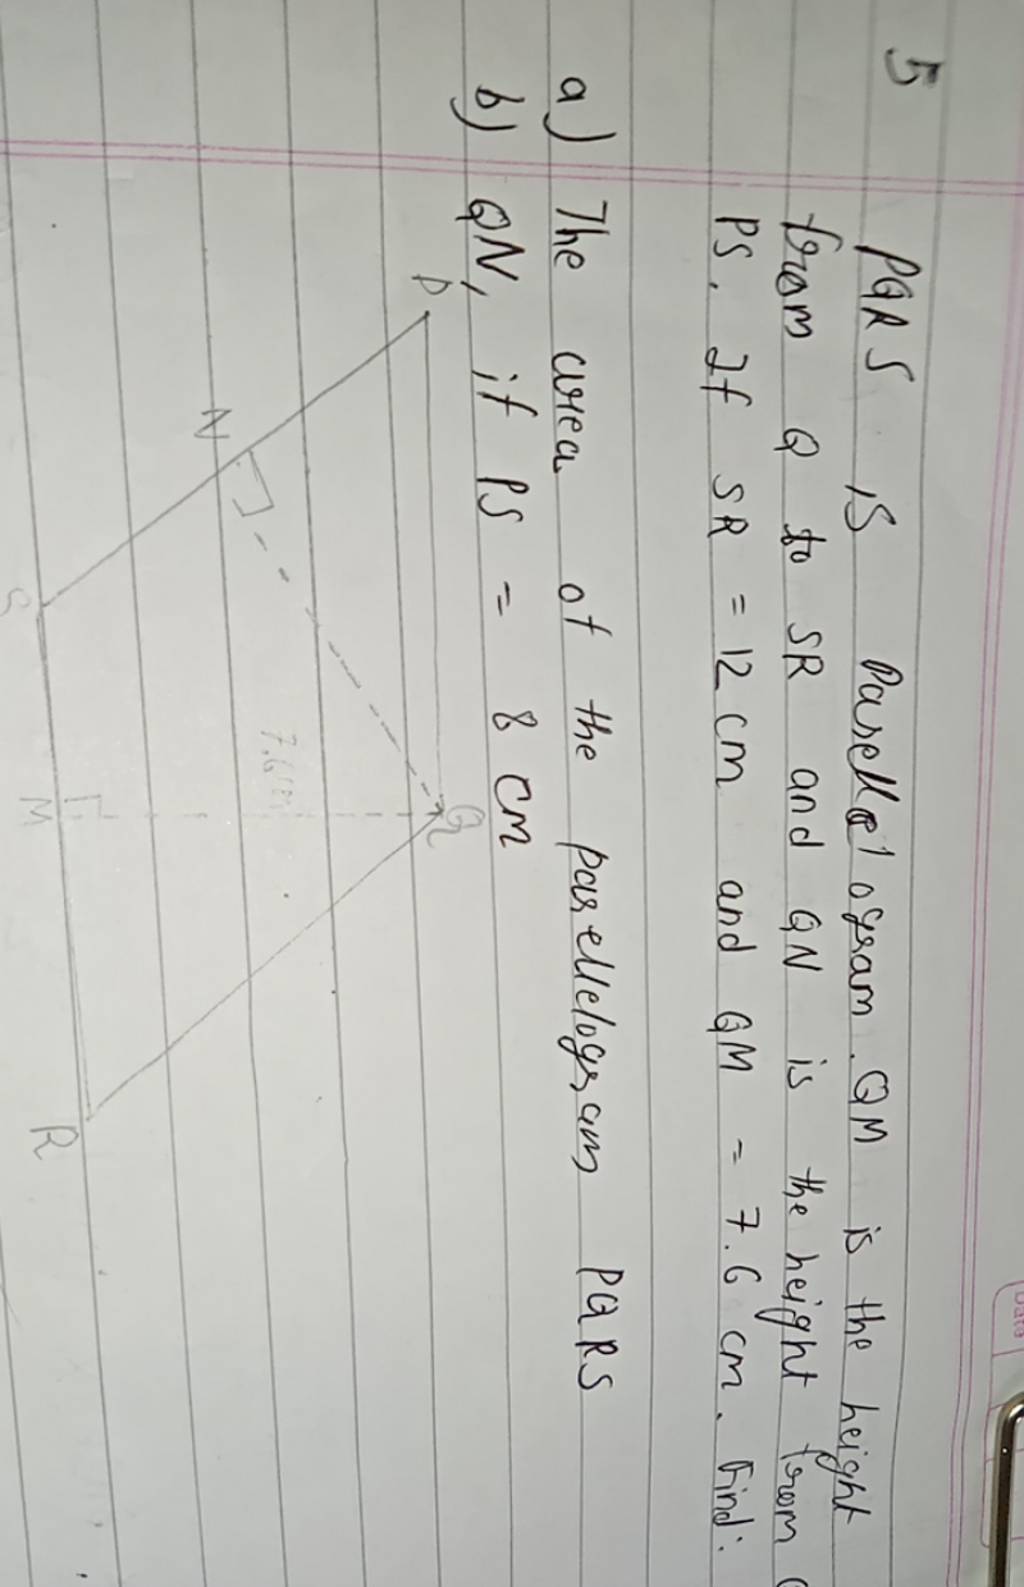 5 PQRS is Parellelogram. QM is the height
from Q to SR and QN is the height from
PS. If SR = 12 cm and QM = 7.6 cm. Find:
a) The area of the parellelogram PQRS
b) QN, if PS = 8 cm
P
Q
N
7.6cm
S
M
R
Date